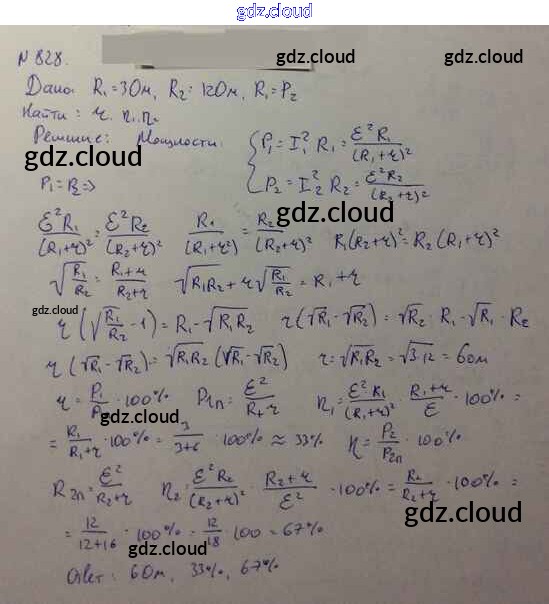 gdz.cloud
N 828.
gdz.cloud gdz.cloud
Дано R₁=3Ом, R₂=12Ом, R₁=P₂
Найти: r. η₁ η₂
Решение: Мощности: { P₁ = I₁² R₁ = ℰ²R₁/(R₁+r)²
gdz.cloud
P₂ = I₂² R₂ = ℰ²R₂/(R₂+r)²
gdz.cloud
P₁=P₂ =>
ℰ²R₁/(R₁+r)² = ℰ²R₂/(R₂+r)² R₁/(R₁+r²) = R₂/(R₂+r)² R₁(R₂+r)²=R₂(R₁+r)²
gdz.cloud
√(R₁/R₂) = (R₁+r)/(R₂+r) √(R₁R₂) + r√(R₁/R₂) = R₁+r
gdz.cloud gdz.cloud
r(√(R₁/R₂) -1) = R₁-√(R₁R₂) r(√R₁-√R₂) = √R₂·R₁-√R₁·R₂
r(√R₁-√R₂) = √(R₁R₂)(√R₁-√R₂) r=√(R₁R₂) = √(3·12) = 6Ом
η = P₁/P₁п · 100% P₁п = ℰ²/(R₁+r) η₁ = ℰ²R₁/(R₁+r)² · (R₁+r)/ℰ · 100% =
gdz.cloud gdz.cloud
= R₁/(R₁+r) · 100% = 3/(3+6) · 100% ≈ 33% η = P₂/P₂п · 100%
R₂п = ℰ²/(R₂+r) η₂ = ℰ²R₂/(R₂+r)² · (R₂+r)/ℰ² · 100% = R₂/(R₂+r) · 100% =
gdz.cloud
= 12/(12+16) · 100% = 12/18 · 100 = 67%
gdz.cloud
Ответ: 6Ом, 33%, 67%